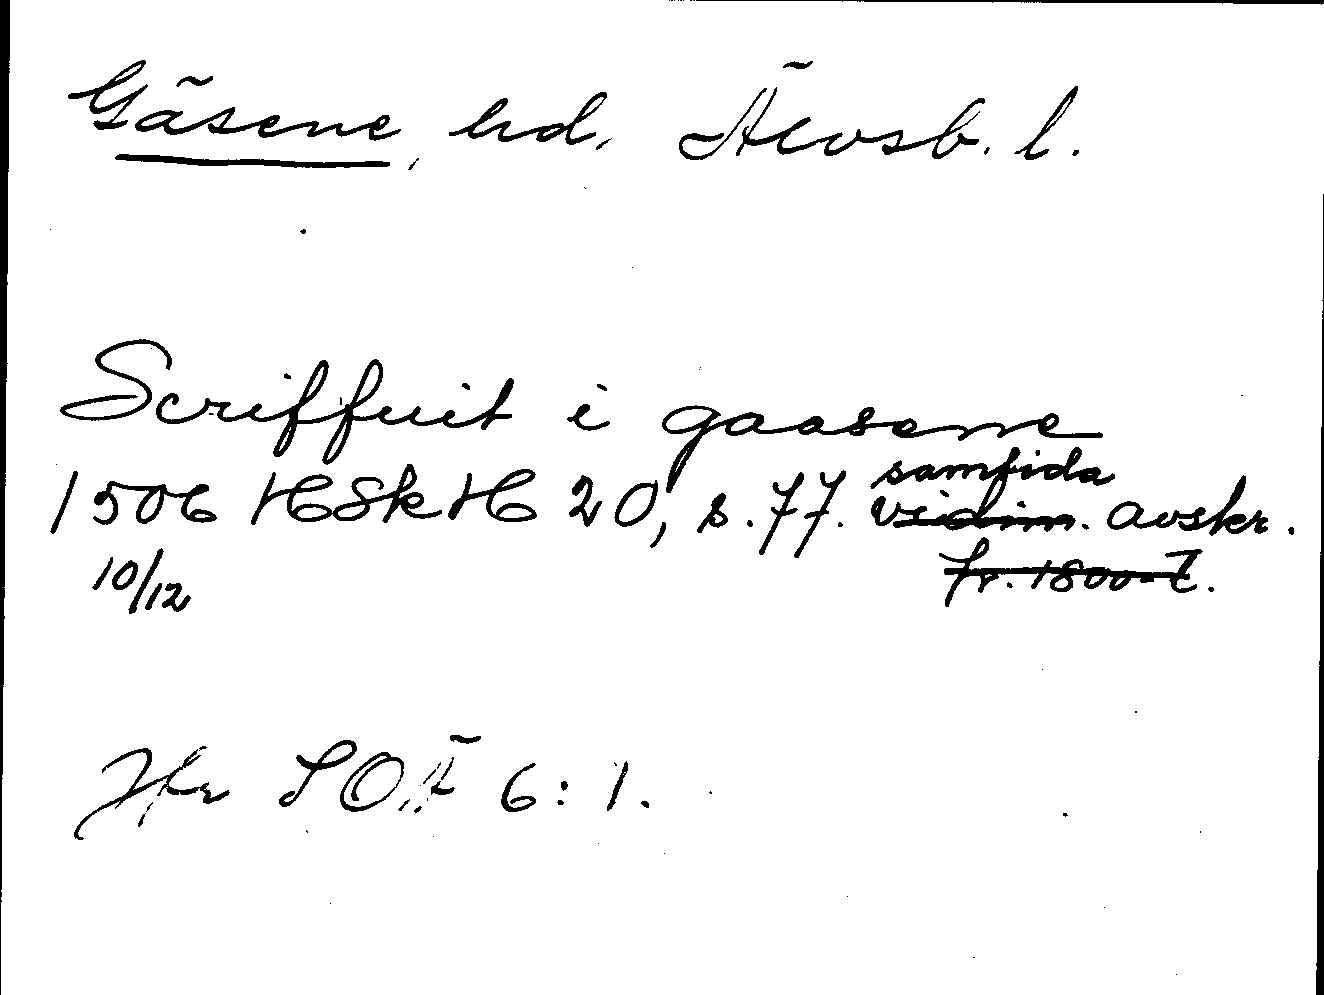 Gäsene, hd. Älvsb. l.
Scriffuit i gaasene
samtida
1506 HSkH 20, s. 77. vidim. avskr.
10/12 fr. 1800-t.
Jfr SOÄ 6:1.